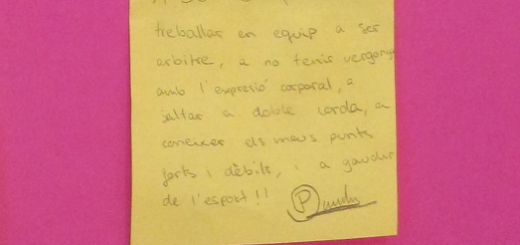 treballar en equip a ser
arbitre, a no tenir vergonya
amb l'expresió corporal, a
saltar a doble corda, a
coneixer els meus punts
forts i dèbils, i a gaudir
de l'esport!!